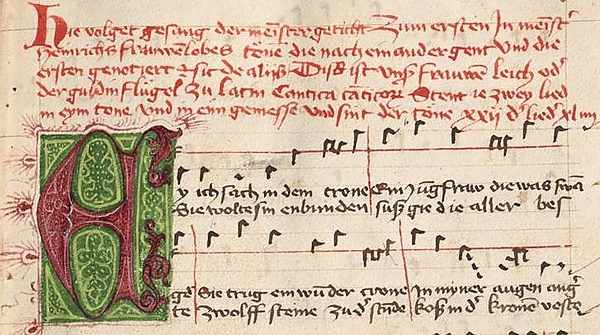 Hie volget gesang der meister geticht Zum ersten In meist'
Heinrichs frauwenlobes tone die nach ein ander gent Vnd die
ersten genotiert sit de aliis Diß ist vnß frauwen leich od'
der guldin flugel zu latin Cantica canticor Stent ie zwey lied
in eym tone vnd in ein gemesse vnd sint der tone xxii d' lied' xliiii
Ey ich sach in dem trone Ein Jungfrauw die was swan
Sie wolte sin enbunden suß gie die aller bes
ger Sie trug ein wunder crone In myner augen ang'
te zwolff steine zu d' stude koß in d' kronen veste